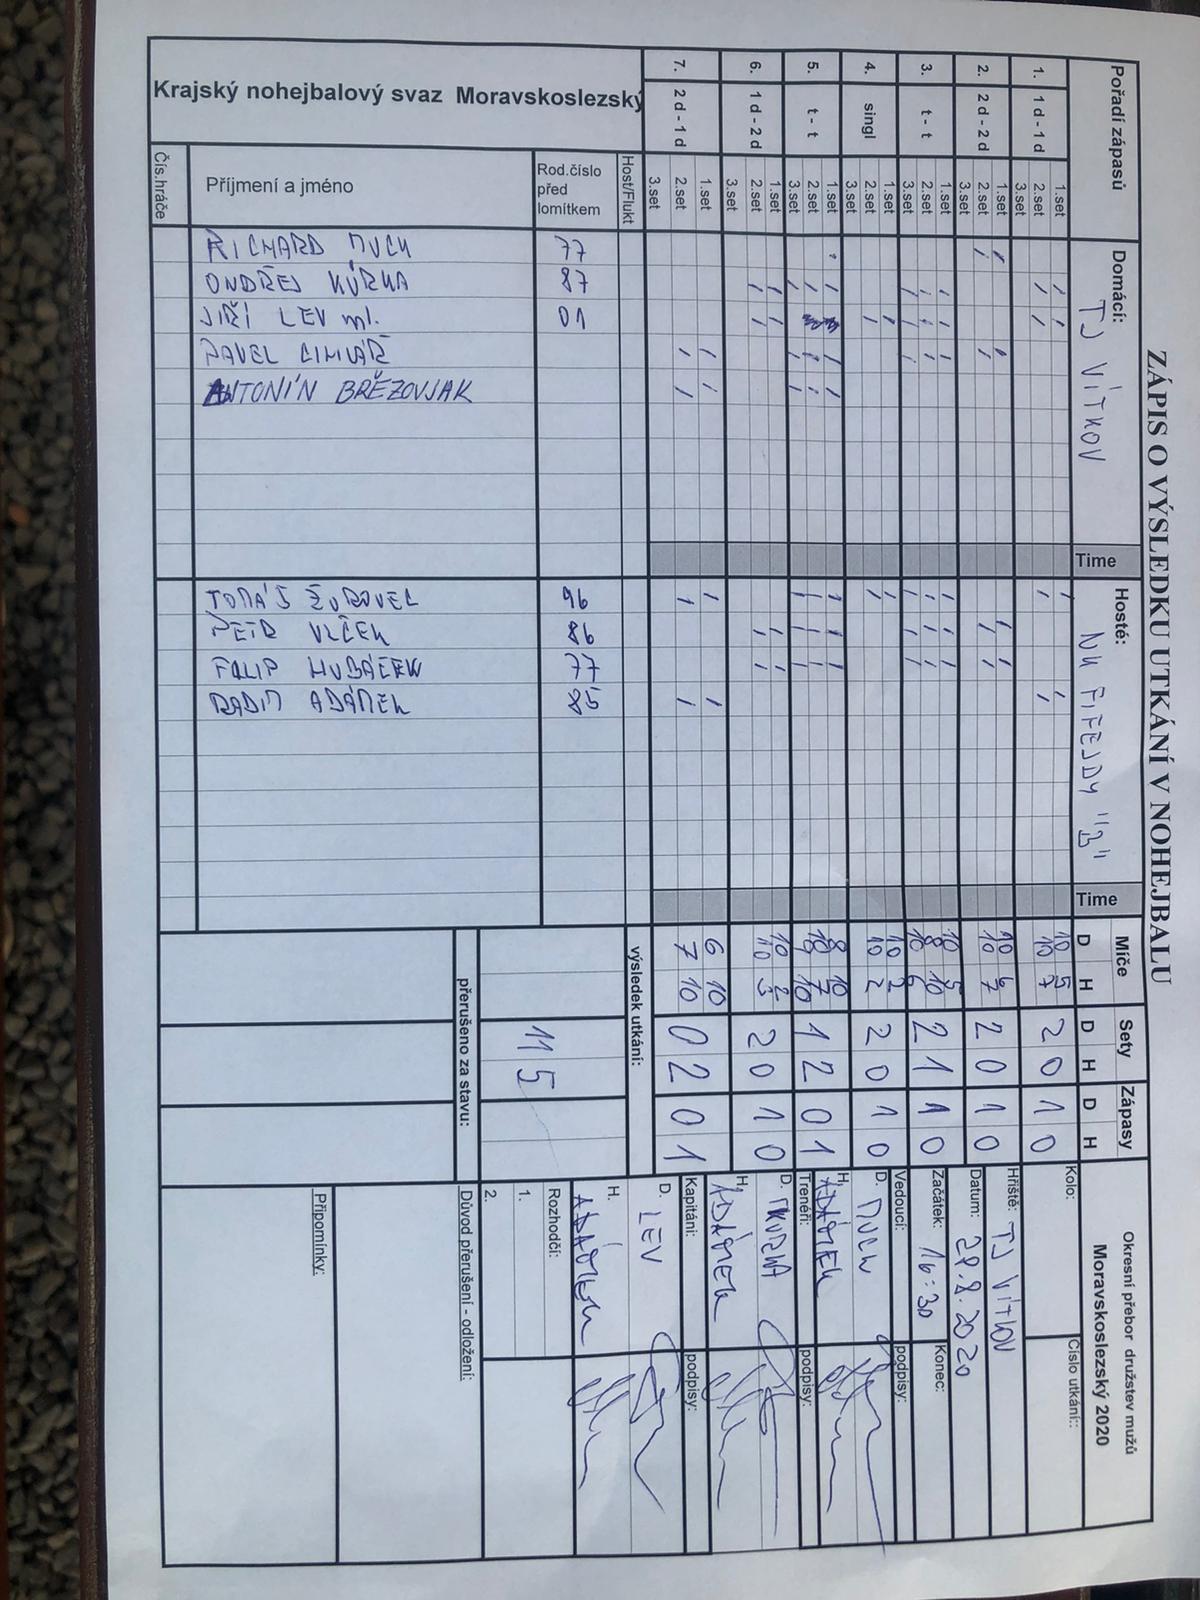 ZÁPIS O VÝSLEDKU UTKÁNÍ V NOHEJBALU
Pořadí zápasů
Domácí: TJ VÍTKOV
Time
Hosté: NK FIFEJDY "B"
Time
Míče
Sety
Zápasy
D H D H D H
1. 1 d - 1 d 1.set 2.set 3.set
10 5
10 7
2 0 1 0
2. 2 d - 2 d 1.set 2.set 3.set
10 6
10 7
2 0 1 0
3. t - t 1.set 2.set 3.set
10 5
8 10
10 6
2 1 1 0
4. singl 1.set 2.set
10 2
10 2
2 0 1 0
5. t - t 1.set 2.set 3.set
8 10
10 7
10
1 2 0 1
6. 1 d - 2 d 1.set 2.set 3.set
10 2
10 3
2 0 1 0
7. 2 d - 1 d 1.set 2.set 3.set
6 10
7 10
0 2 0 1
Krajský nohejbalový svaz Moravskoslezský
Čís.hráče
Příjmení a jméno
Rod.číslo před lomítkem
Host/Flukt
RICHARD MUCK 77
ONDŘEJ KŮRKA 87
JIŘÍ LEV ml. 01
PAVEL
ANTONÍN BŘEZOVJAK
TOMÁŠ ŽUROVEC 96
PETR VLČEK 86
FILIP HUBÁČEK 77
RADIM ADÁMEK 85
výsledek utkání:
11 5
přerušeno za stavu:
Okresní přebor družstev mužů
Moravskoslezský 2020
Kolo:
Číslo utkání::
Hřiště: TJ VÍTKOV
Datum: 28.8.2020
Začátek: 16:30
Konec:
Vedoucí:
podpisy:
D. MUCK
H. ADÁMEK
Trenéři:
podpisy:
D. KŮRKA
H. ADÁMEK
Kapitáni:
podpisy:
D. LEV
H. ADÁMEK
Rozhodčí:
1.
2.
Důvod přerušení - odložení:
Připomínky: